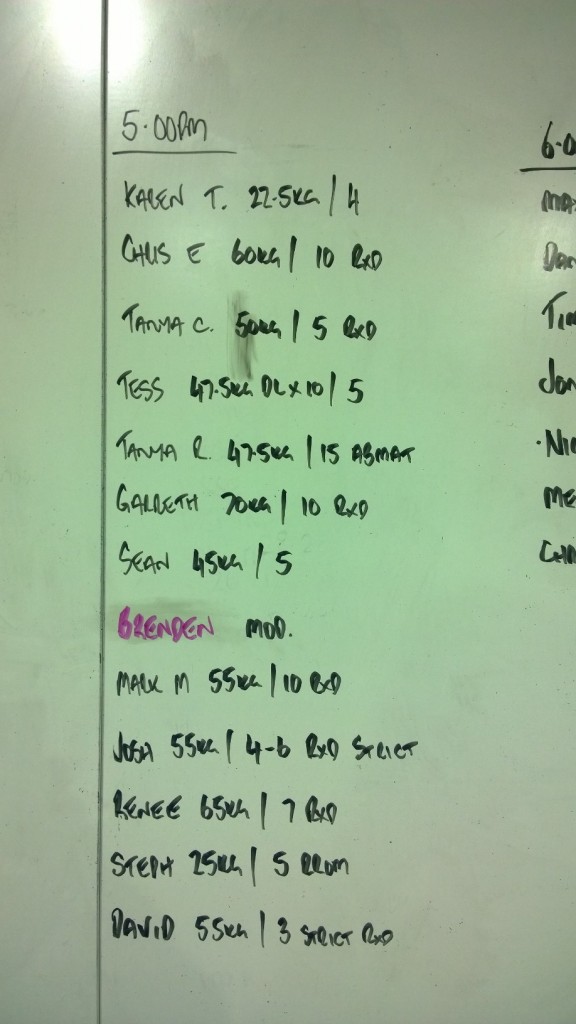 5.00PM
KAREN T. 22.5KG / 4
CHRIS E 60KG / 10 RXD
TANYA C. 50KG / 5 RXD
TESS 47.5KG DL X 10 / 5
TANYA R. 47.5KG / 15 ABMAT
GARRETH 70KG / 10 RXD
SEAN 45KG / 5
BRENDEN MOD.
MARK M 55KG / 10 RXD
JOSH 55KG / 4-6 RXD STRICT
RENEE 65KG / 7 RXD
STEPH 25KG / 5
DAVID 55KG / 3 STRICT RXD
6.0
DAN
TIM
JON
ME